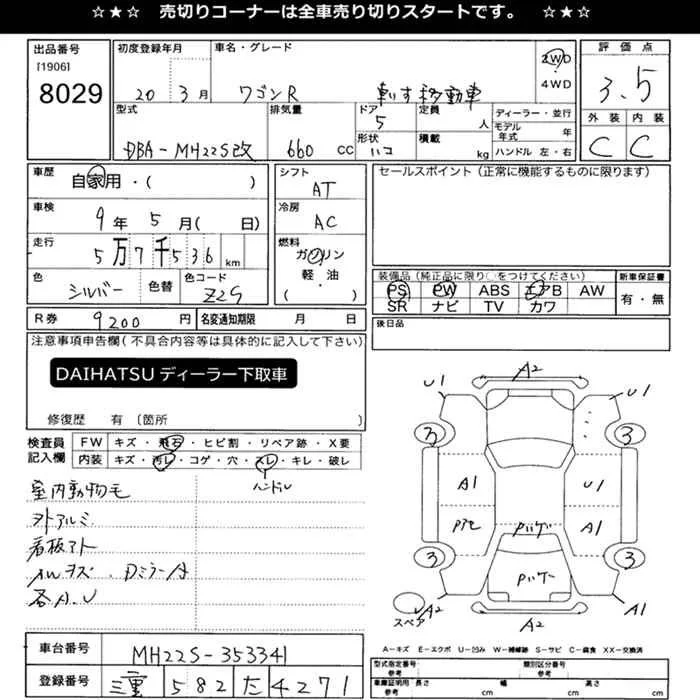 ☆★☆ 売切りコーナーは全車売り切りスタートです。 ☆★☆
出品番号 初度登録年月 車名・グレード 2WD 評価点
[1906] 4WD
8029 20 3月 ワゴンR 車いす移動車 3.5
型式 排気量 ドア 定員 ディーラー・並行 外装 内装
DBA-MH22S改 660cc 5 人 モデル年式 年 C C
形状 積載
ハコ kg ハンドル 左・右
車歴 自家用・( ) シフト AT セールスポイント(正常に機能するものに限ります)
車検 9年5月( 日) 冷房 AC
走行 5万7千536km 燃料 ガソリン
軽・油
( )
色 シルバー 色替 色コード Z2S
装備品(純正品に限り○をつけてください) 新車保証書
PS PW ABS エアB AW 有・無
SR ナビ TV カワ
R券 9200円 名変通知期限 月 日 後日品
注意事項申告欄(不具合内容等は具体的に記入して下さい)
DAIHATSUディーラー下取車
修復歴 有 〔箇所 〕
検査員記入欄 FW キズ・飛石・ヒビ割・リペア跡・X要
内装 キズ・汚レ・コゲ・穴・スレ・キレ・破レ
ハンドル
室内動物毛
外アルミ
看板アト
各A.U
A2
U1 U1
3 3
A1 U1
A1
3 3
スペア A2 A2 A1
A-キズ E-エクボ U-凹み W-補修跡 S-サビ C-腐食 XX-交換済
車台番号 MH22S-353341
登録番号 三重 582 た 4271
型式指定番号 類別区分番号
参考 参考
車庫証明用 長さ 幅 高さ
参考 cm cm cm